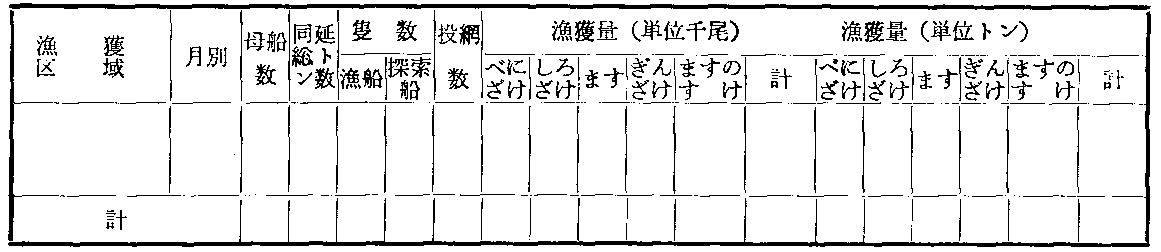 漁獲区域
月別
母船数
同延総トン数
隻数
漁船
探索船
投網数
漁獲量（単位千尾）
べにざけ
しろざけ
ます
ぎんざけ
ますのすけ
計
漁獲量（単位トン）
べにざけ
しろざけ
ます
ぎんざけ
ますのすけ
計
計